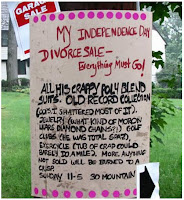 GARAGE
SALE
MY INDEPENDENCE DAY
DIVORCE SALE-
Everything Must Go!
ALL HIS CRAPPY POLY BLEND
SUITS. OLD RECORD COLLECTION
(OOPS. I SHATTERED MOST OF IT).
JEWELRY (WHAT KIND OF MORON
WEARS DIAMOND CHAINS?!) GOLF
CLUBS (HE WAS TOTAL SCAT)
EXERCYCLE (TUB OF CRAP COULD
BARELY DO A MILE). MORE. ANYTHING
NOT SOLD WILL BE BURNED TO A
CRISP.
SUNDAY 11-5 50 MOUNTAIN